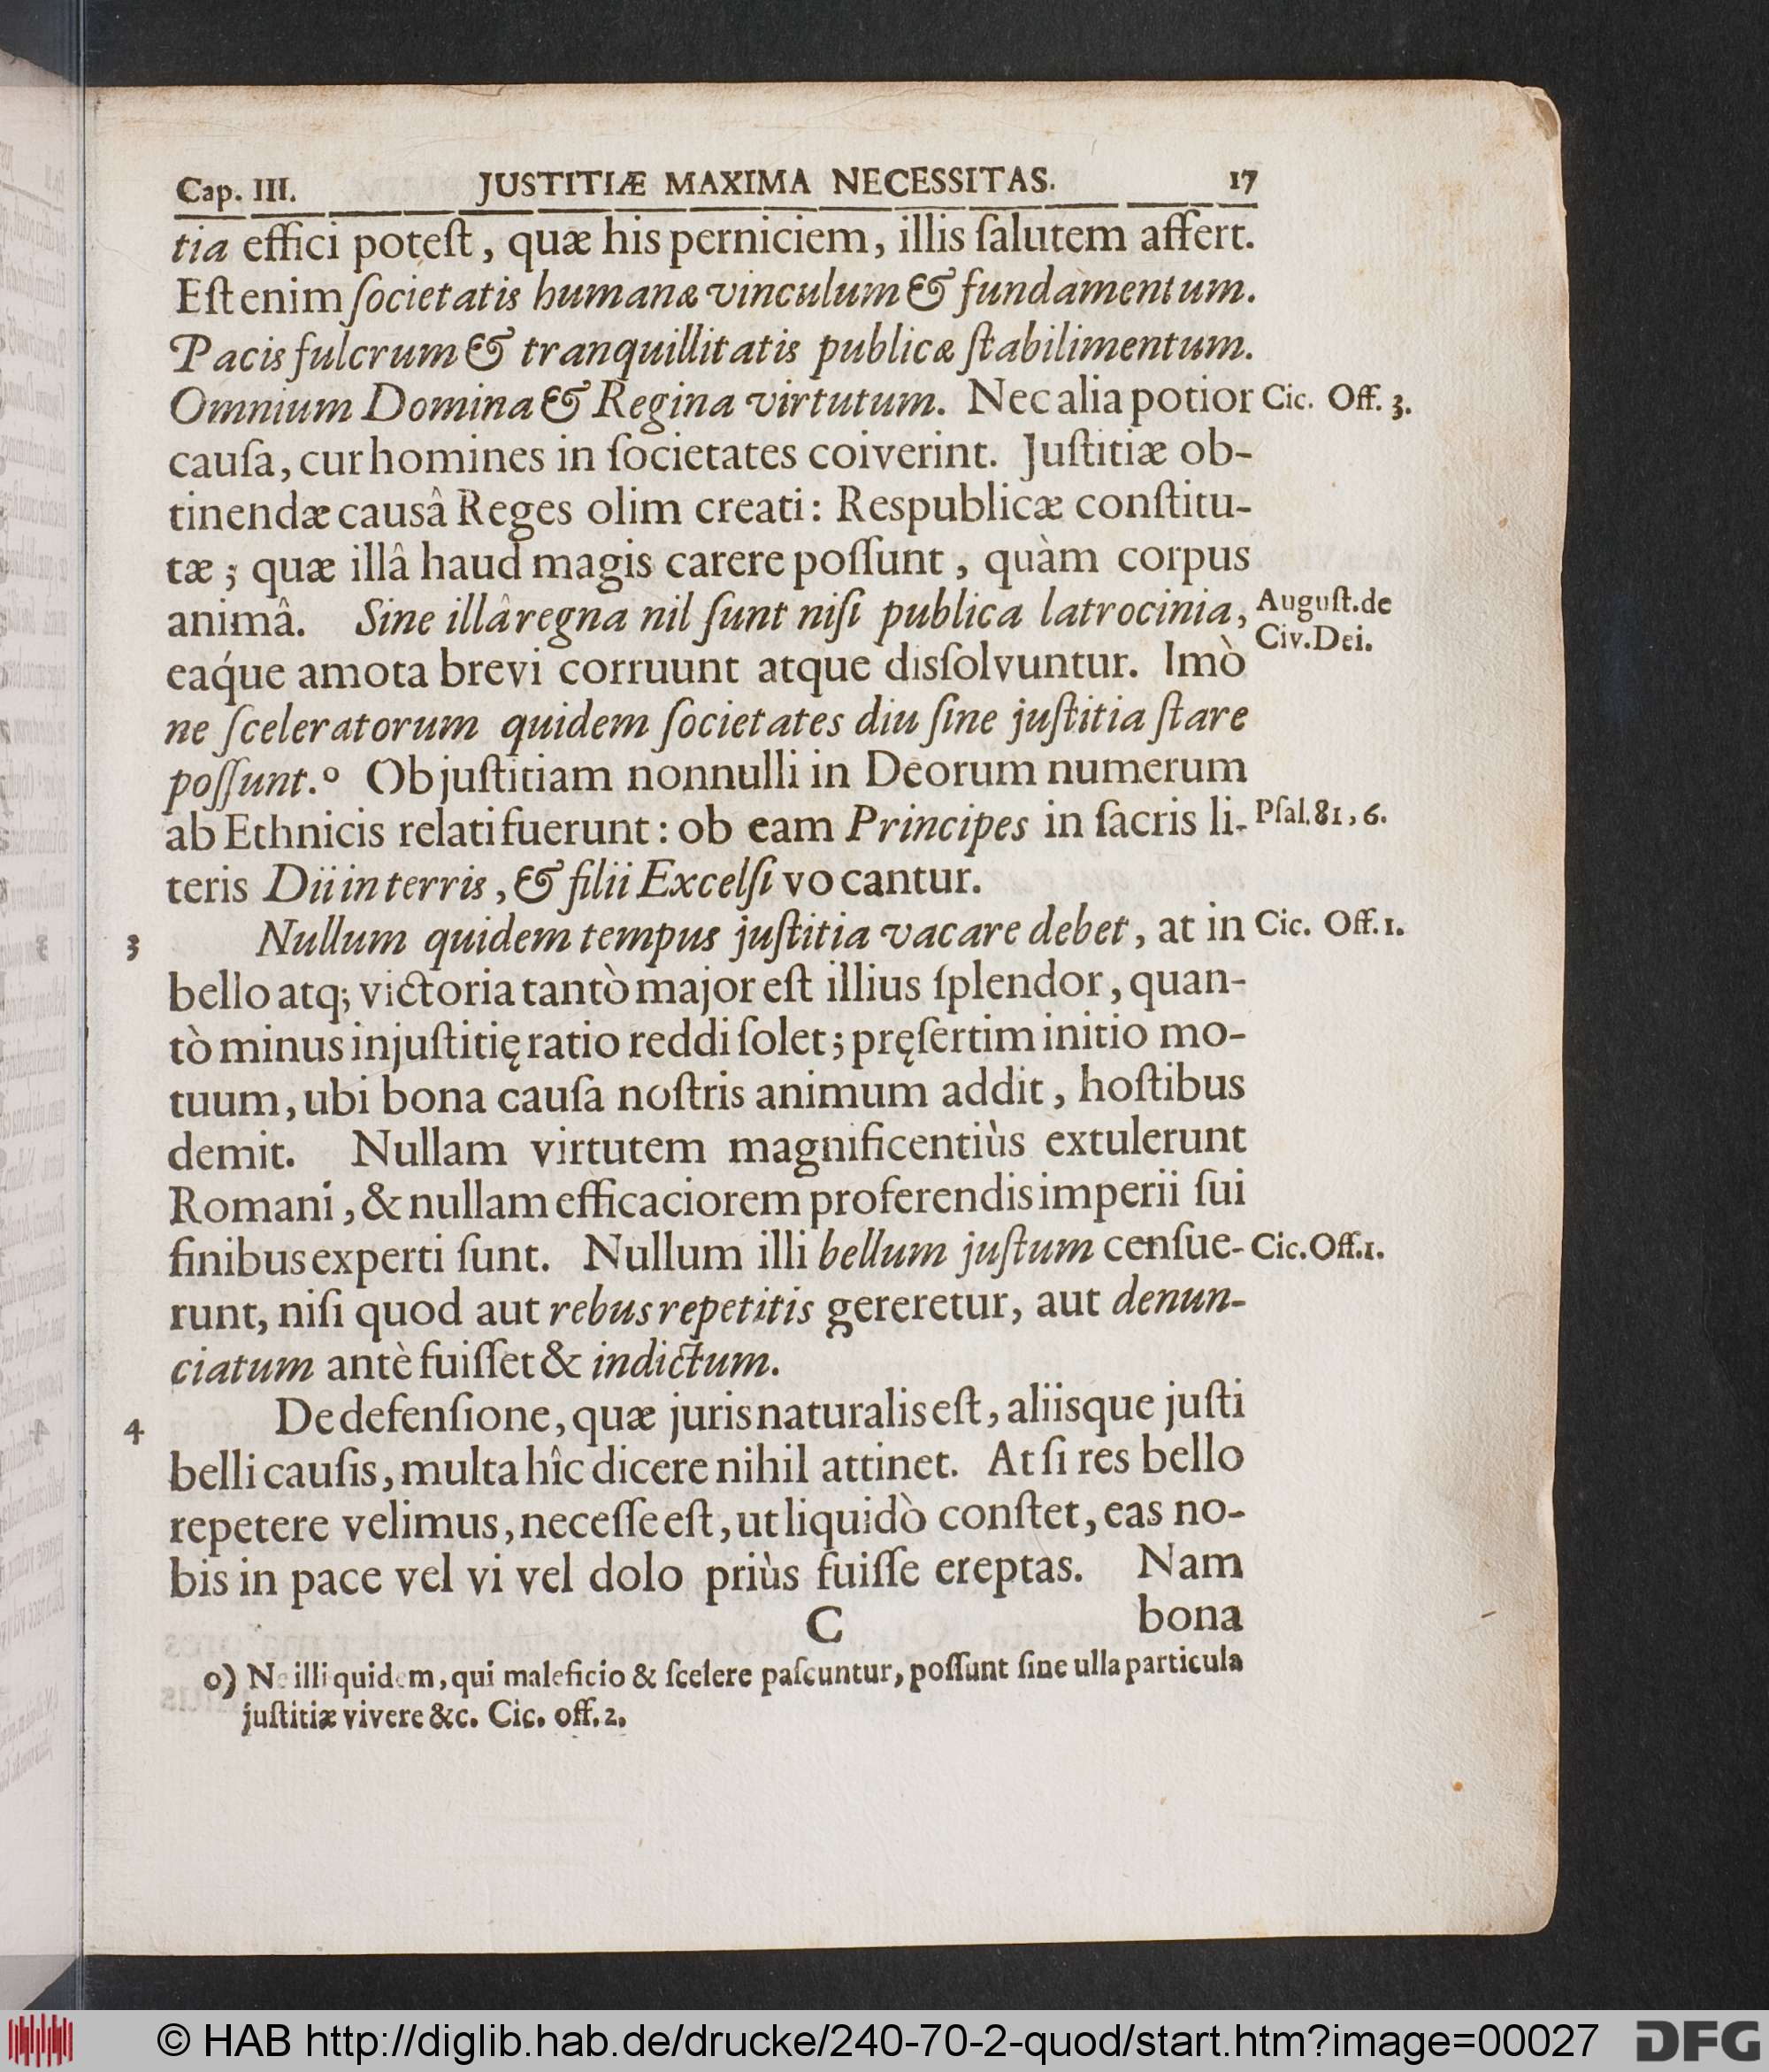 Cap. III. JUSTITIÆ MAXIMA NECESSITAS. 17
tia effici poteſt, quæ his perniciem, illis ſalutem affert.
Eſt enim ſocietatis humanæ vinculum & fundamentum.
Pacis fulcrum & tranquillitatis publicæ ſtabilimentum.
Omnium Domina & Regina virtutum. Nec alia potior Cic. Off. 3.
cauſa, cur homines in ſocietates coiverint. Juſtitiæ ob-
tinendæ causâ Reges olim creati: Respublicæ conſtitu-
tæ; quæ illâ haud magis carere poſſunt, quàm corpus
animâ. Sine illâ regna nil ſunt niſi publica latrocinia, Auguſt. de
Civ. Dei.
eáque amota brevi corruunt atque disſolvuntur. Imò
ne ſceleratorum quidem ſocietates diu ſine juſtitia ſtare
poſſunt.º Ob juſtitiam nonnulli in Deorum numerum
ab Ethnicis relati fuerunt: ob eam Principes in ſacris li- Pſal. 81, 6.
teris Dii in terris, & filii Excelſi vocantur.
3 Nullum quidem tempus juſtitia vacare debet, at in Cic. Off. 1.
bello atq; victoria tantò major eſt illius ſplendor, quan-
tò minus injuſtitię ratio reddi ſolet; pręſertim initio mo-
tuum, ubi bona cauſa noſtris animum addit, hoſtibus
demit. Nullam virtutem magnificentiùs extulerunt
Romani, & nullam efficaciorem proferendis imperii ſui
finibus experti ſunt. Nullum illi bellum juſtum cenſue- Cic. Off. 1.
runt, niſi quod aut rebus repetitis gereretur, aut denun-
ciatum antè fuiſſet & indictum.
4 De defenſione, quæ juris naturalis eſt, aliisque juſti
belli cauſis, multa hîc dicere nihil attinet. At ſi res bello
repetere velimus, neceſſe eſt, ut liquidò conſtet, eas no-
bis in pace vel vi vel dolo priùs fuiſſe ereptas. Nam
C bona
o) Ne illi quidem, qui maleficio & ſcelere paſcuntur, poſſunt ſine ulla particula
juſtitiæ vivere &c. Cic. off. 2.
© HAB http://diglib.hab.de/drucke/240-70-2-quod/start.htm?image=00027 DFG